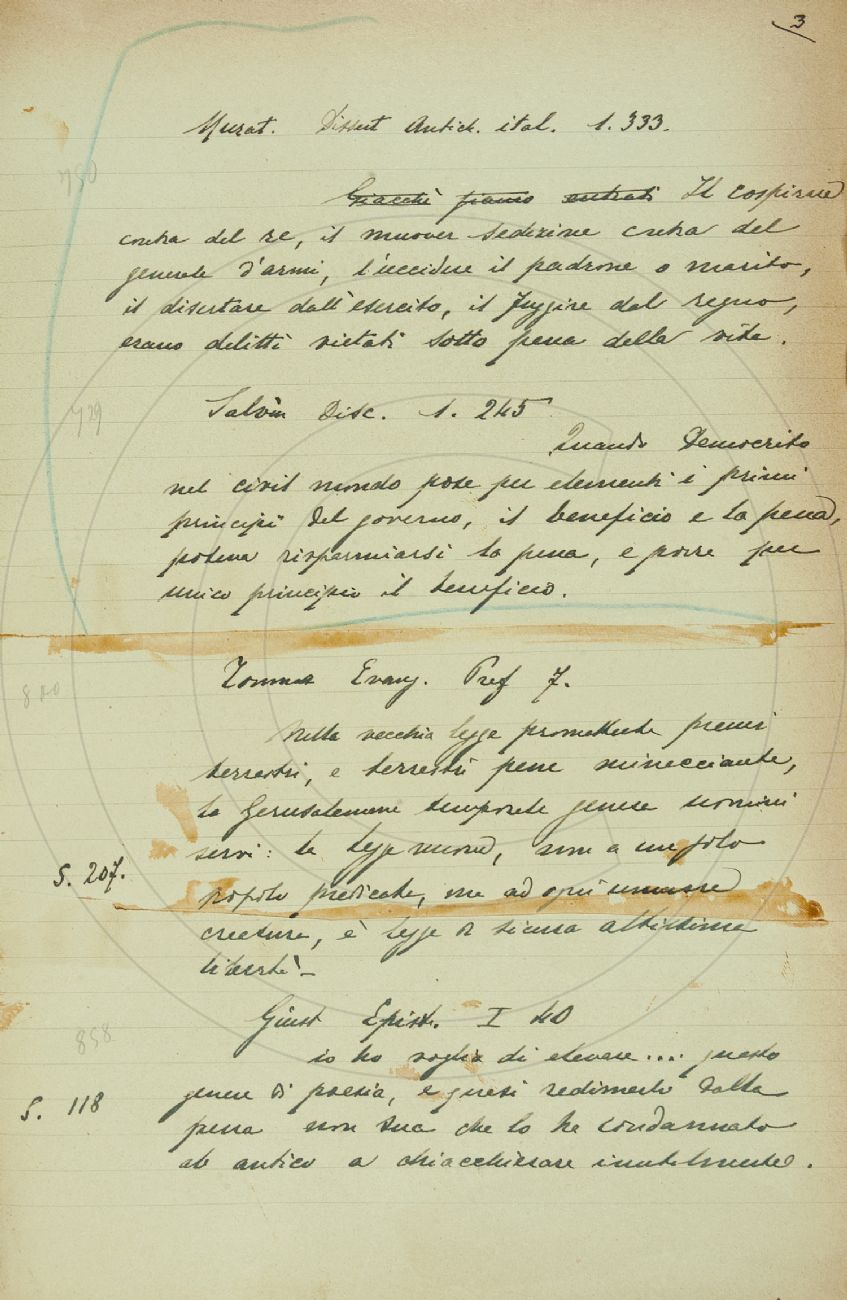 3
Murat. Dissert Antich. ital. 1. 333.
750
Giacchè siamo entrati Il cospirare
contra del re, il muover sedizione contra del
generale d'armi, l'uccidere il padrone o marito,
il disertare dall'esercito, il fuggire dal regno,
erano delitti vietati sotto pena della vita.
729
Salvin Disc. 1. 245
Quando Democrito
nel civil mondo pose per elementi i primi
principii del governo, il beneficio e la pena,
poteva risparmiarsi la pena, e porre per
unico principio il beneficio.
Tommas Evang. Pref 7.
Nella vecchia legge promettente premi
terrestri, e terrestri pene minacciante,
la Gerusalemme temporale genera uomini
servi: la legge nuova, non a un solo
S. 207.
popolo predicata, ma ad ogni umana
creatura, è legge di sicura altissima
libertà.
858
Giust Epist. I 40
io ho voglia di elevare.... questo
S. 118
genere di poesia, e quasi redimerlo dalla
pena non sua che lo ha condannato
ab antico a chiacchierare inutilmente.